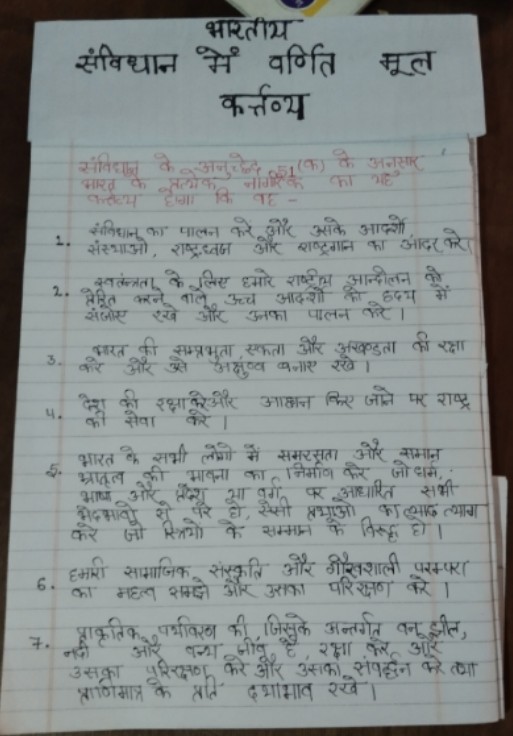 भारतीय
संविधान में वर्णित मूल
कर्त्तव्य
संविधान के अनुच्छेद 51(क) के अनुसार
भारत के प्रत्येक नागरिक का यह
कर्तव्य होगा कि वह -
1. संविधान का पालन करें और उसके आदर्शो,
संस्थाओ, राष्ट्रध्वज और राष्ट्रगान का आदर करे।
2. स्वतंत्रता के लिए हमारे राष्ट्रीय आन्दोलन को
प्रेरित करने वाले उच्च आदर्शो को हृदय में
संजोए रखे और उनका पालन करे ।
3. भारत की सम्प्रभुता, एकता और अखण्डता की रक्षा
करे और उसे अक्षुण्ण बनाए रखे ।
4. देश की रक्षा करे और आह्वान किए जाने पर राष्ट्र
की सेवा करे ।
5. भारत के सभी लोगो में समरसता और समान
भ्रातृत्व की भावना का निर्माण करे जो धर्म,
भाषा और प्रदेश या वर्ग पर आधारित सभी
भेदभावो से परे हो, ऐसी प्रथाओ का त्याग
करे जो स्त्रियो के सम्मान के विरूद्ध हो ।
6. हमारी सामाजिक संस्कृति और गौरवशाली परम्परा
का महत्व समझे और उसका परिरक्षण करे ।
7. प्राकृतिक पर्यावरण की, जिसके अन्तर्गत वन, झील,
नदी और वन्य जीव है, रक्षा करे और
उसका परिरक्षण करे और उसका संवर्द्धन करे तथा
प्राणिमात्र के प्रति दयाभाव रखे ।